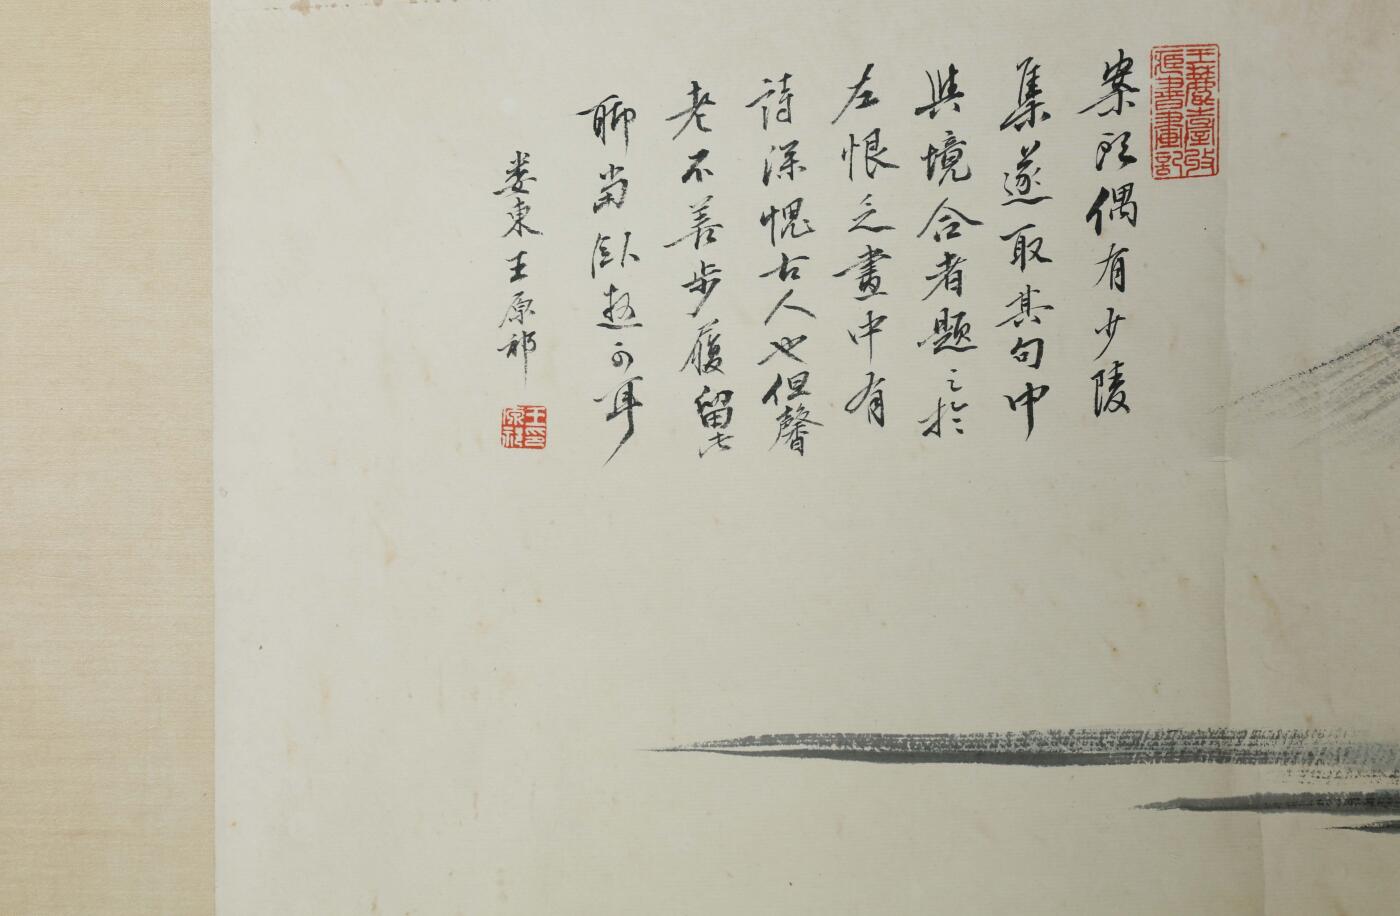 王麓臺收
藏書畫記
案頭偶有少陵
集遂取其句中
與境合者題之於
左恨乏畫中有
詩深愧古人也但馨
老不善步履留此
聊當臥遊可耳
婁東王原祁
王印
原祁